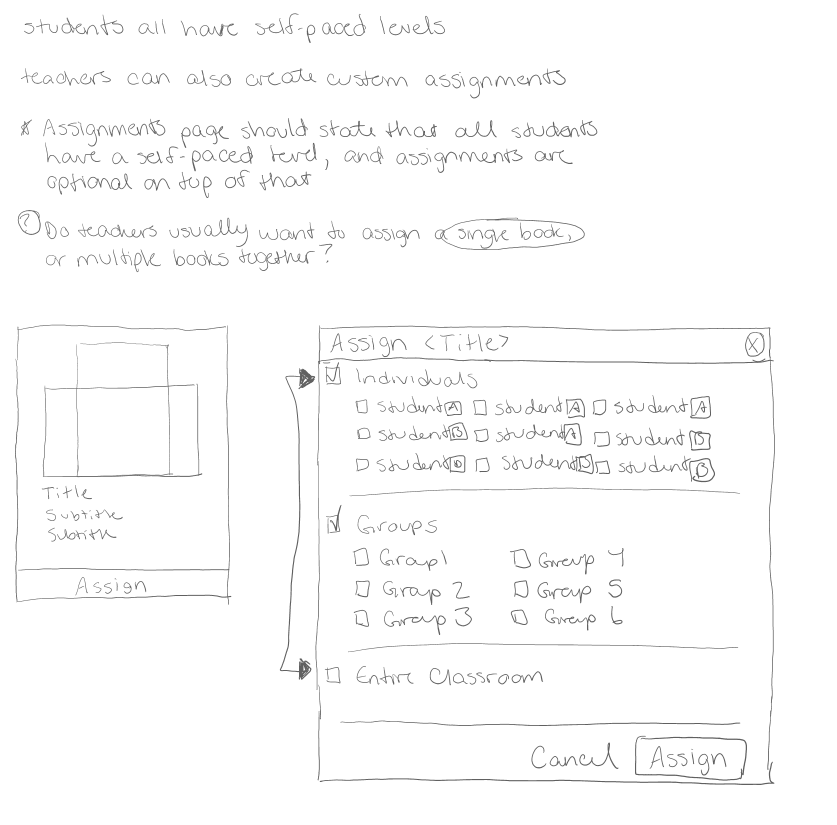 students all have self-paced levels
teachers can also create custom assignments
* Assignments page should state that all students
have a self-paced level, and assignments are
optional on top of that
? Do teachers usually want to assign a single book,
or multiple books together?
Title
Subtitle
Subtitle
Assign
Assign <Title>
X
Individuals
student A student A student A
student B student A student B
student D student D student B
Groups
Group 1 Group 4
Group 2 Group 5
Group 3 Group 6
Entire Classroom
Cancel Assign